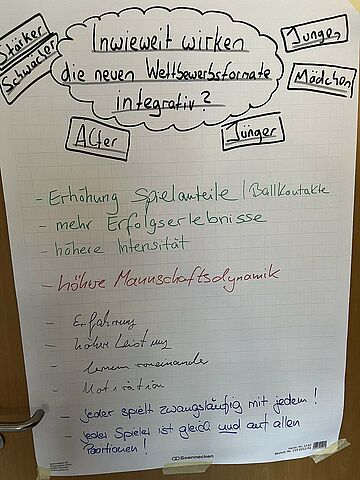 Stärker
Schwächer
Inwieweit wirken
die neuen Wettbewerbsformate
integrativ?
Jungen
Mädchen
Älter
Jünger
- Erhöhung Spielanteile / Ballkontakte
- mehr Erfolgserlebnisse
- höhere Intensität
- höhere Mannschaftsdynamik
- Erfahrung
- höhere Leistung
- lernen voneinander
- Motivation
- jeder spielt zwangsläufig mit jedem!
- jeder Spieler ist gleich und auf allen
Positionen!
Soennecken